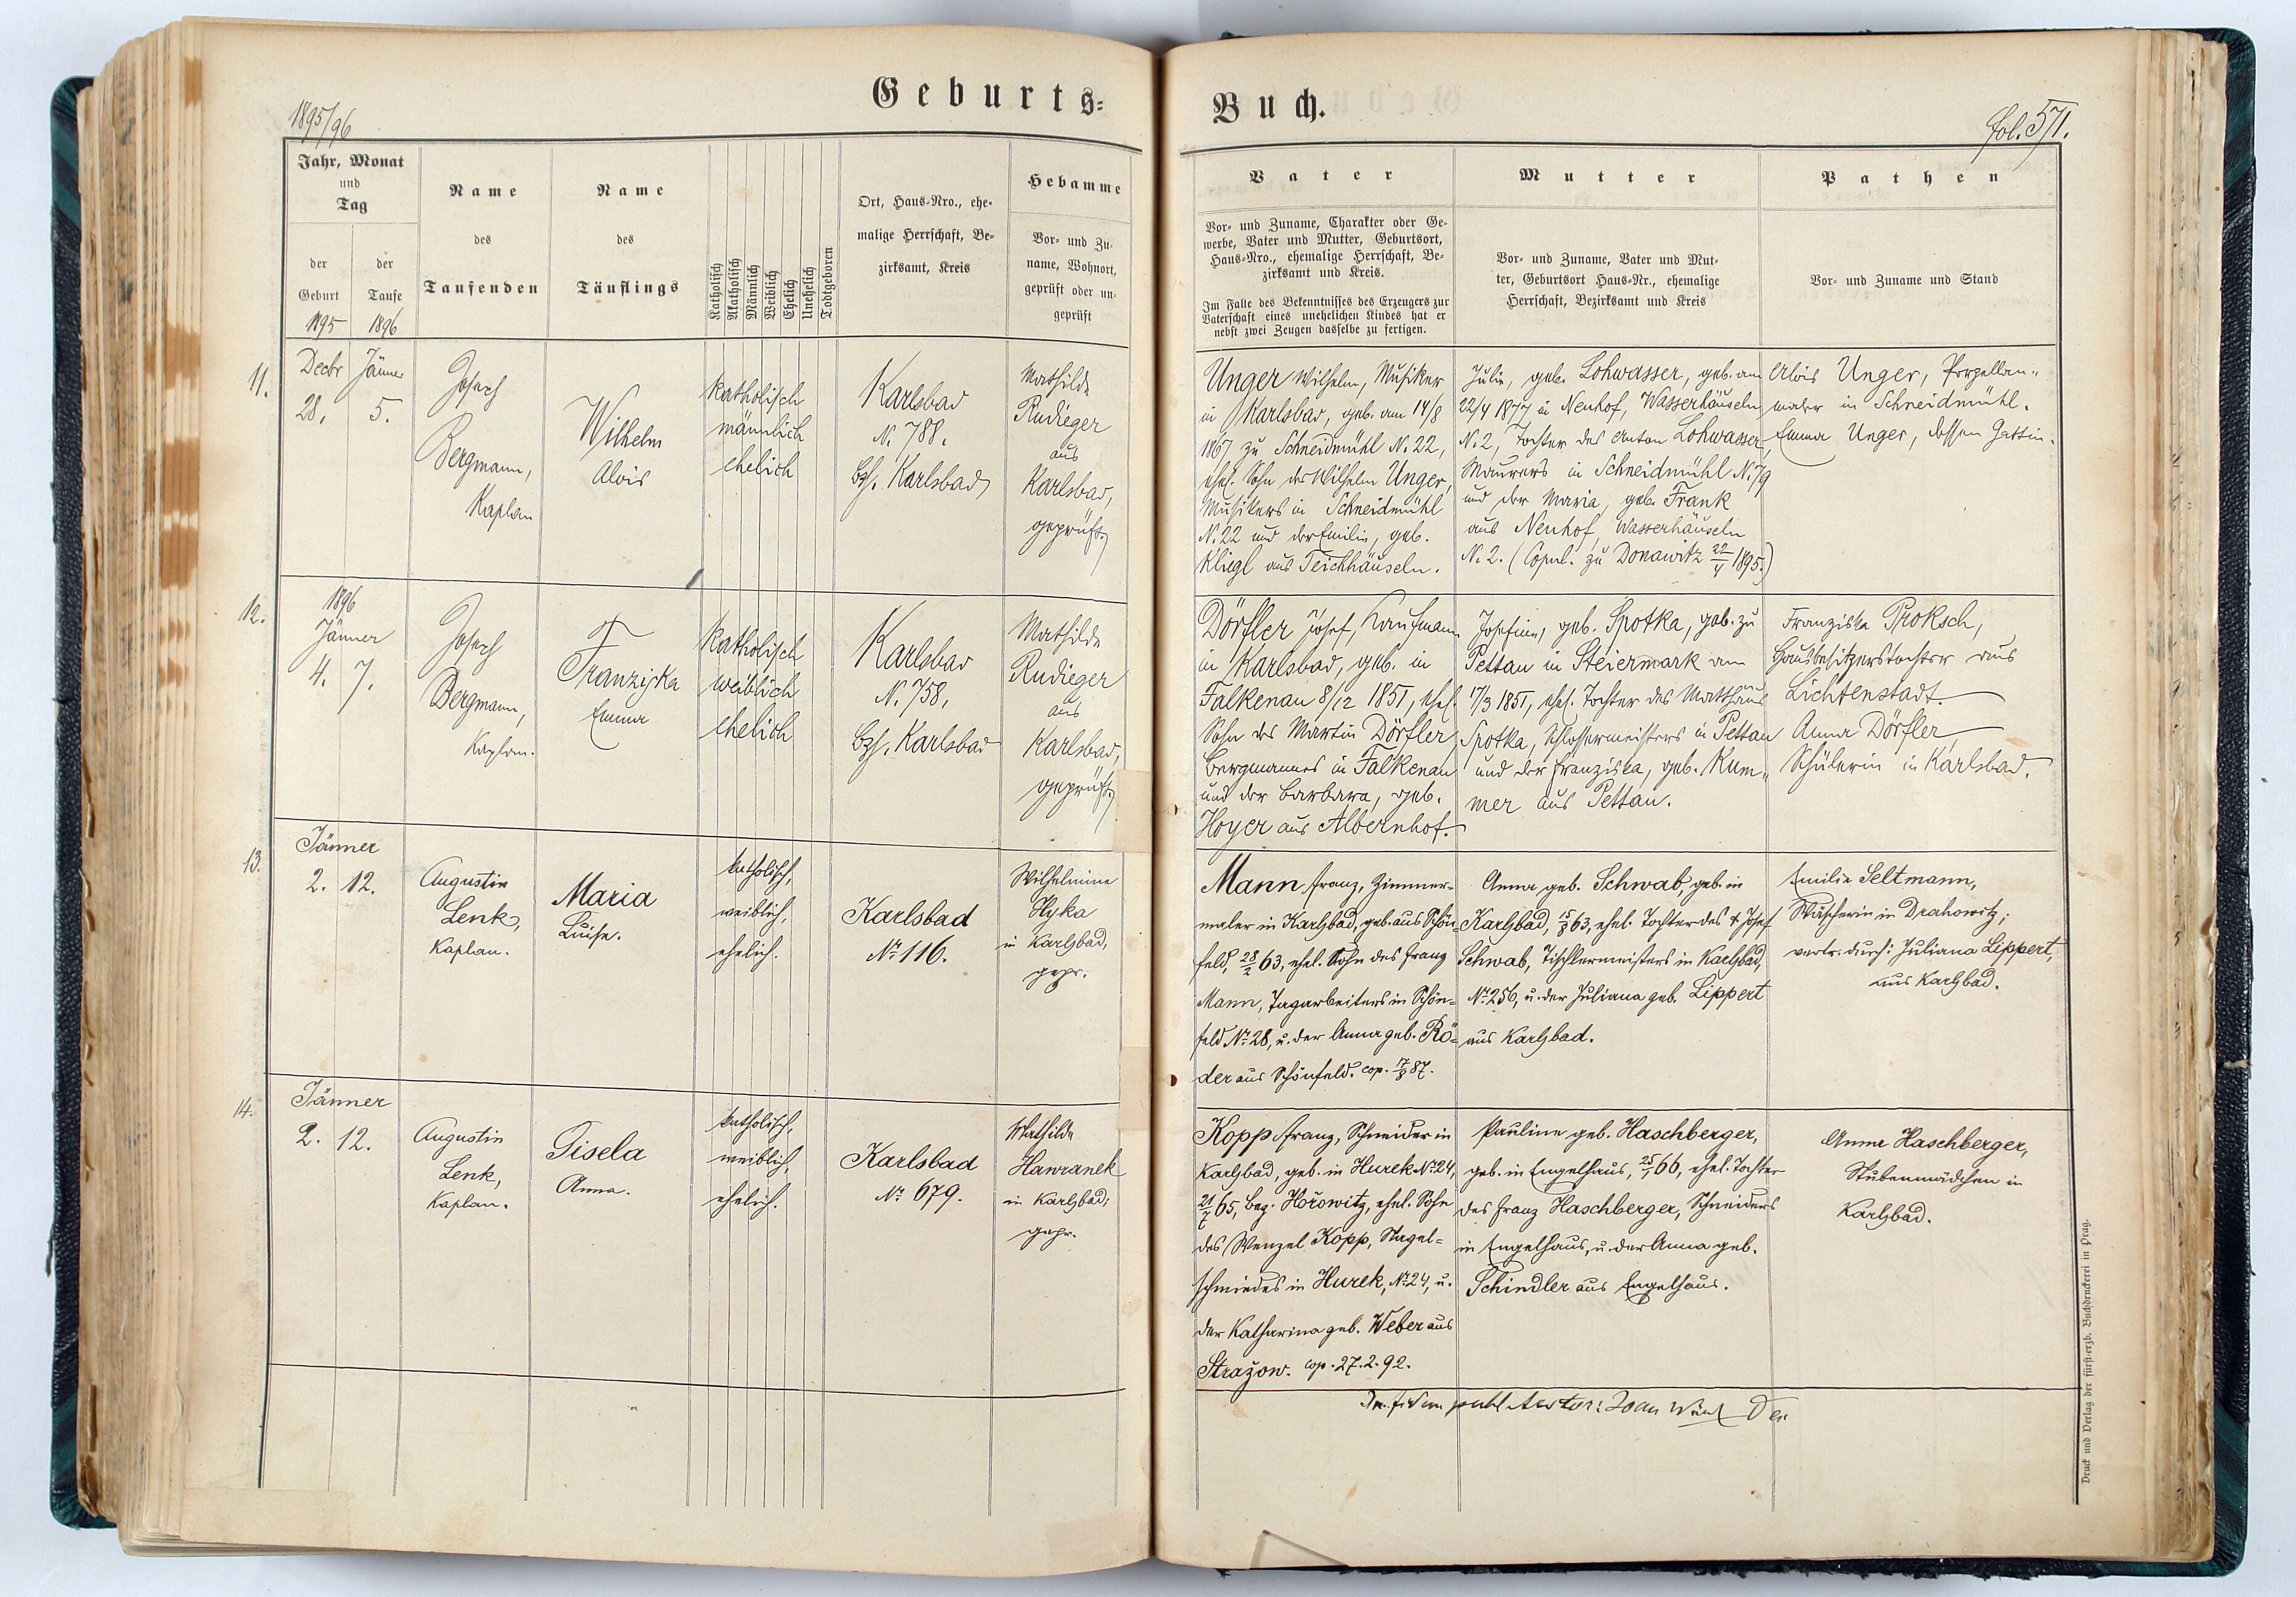 1895/96
Geburts=
Jahr, Monat
und
Tag
der
Geburt
1895
der
Taufe
1896
Name
des
Taufenden
Name
des
Täuflings
Katholisch
Akatholisch
Männlich
Weiblich
Ehelich
Unehelich
Todtgeboren
Ort, Haus-Nro., ehe-
malige Herrschaft, Be-
zirksamt, Kreis
Hebamme
Vor- und Zu-
name, Wohnort,
geprüft oder un-
geprüft
11.
Decbr
28.
Jänner
5.
Josef
Bergmann,
Kaplan
Wilhelm
Alois
katholisch
männlich
ehelich
Karlsbad
N. 788.
Bzh. Karlsbad
Mathilde
Rudieger
aus
Karlsbad,
geprüft.
12.
1896
Jänner
4. 7.
Josef
Bergmann,
Kaplan.
†
Franziska
Emma
katholisch
weiblich
ehelich
Karlsbad
N. 758.
Bzh. Karlsbad
Mathilde
Rudieger
aus
Karlsbad,
geprüft.
13.
Jänner
2. 12.
Augustin
Lenk,
Kaplan.
Maria
Luise.
katholisch,
weiblich,
ehelich.
Karlsbad
Nr. 116.
Wilhelmine
Hyka
in Karlsbad,
gepr.
14.
Jänner
2. 12.
Augustin
Lenk,
Kaplan.
Gisela
Anna.
katholisch,
weiblich,
ehelich.
Karlsbad
Nr. 679.
Mathilde
Hawranek
in Karlsbad,
gepr.
Buch.
fol. 571.
Vater
Vor- und Zuname, Charakter oder Ge-
werbe, Vater und Mutter, Geburtsort,
Haus-Nro., ehemalige Herrschaft, Be-
zirksamt und Kreis.
Im Falle des Bekenntnisses des Erzeugers zur
Vaterschaft eines unehelichen Kindes hat er
nebst zwei Zeugen dasselbe zu fertigen.
Mutter
Vor- und Zuname, Vater und Mut-
ter, Geburtsort Haus-Nr., ehemalige
Herrschaft, Bezirksamt und Kreis
Pathen
Vor- und Zuname und Stand
Unger Wilhelm, Musiker
in Karlsbad, geb. am 14/8
1867 zu Schneidmühl N. 22,
ehel. Sohn des Wilhelm Unger,
Musikers in Schneidmühl
N. 22 und der Emilie, geb.
Kliegl aus Teichhäuseln.
Julie, geb. Lohwasser, geb. am
22/4 1877 in Neuhof, Wasserhäuseln
N. 2, Tochter des Anton Lohwasser,
Maurers in Schneidmühl N. 79
und der Maria, geb. Frank
aus Neuhof, Wasserhäuseln
N. 2. (Copul. zu Donawitz 22/4 1895.)
Alois Unger, Porzellan-
maler in Schneidmühl.
Emma Unger, dessen Gattin.
Dörfler Josef, Kaufmann
in Karlsbad, geb. in
Falkenau 8/12 1851, ehel.
Sohn des Martin Dörfler
Bergmannes in Falkenau
und der Barbara, geb.
Hoyer aus Albernhof.
Josefine, geb. Spotka, geb. zu
Pettau in Steiermark am
17/3 1851, ehel. Tochter des Matthäus
Spotka, Schlossermeisters in Pettau
und der Franziska, geb. Kum-
mer aus Pettau.
Franziska Proksch,
Hausbesitzerstochter aus
Lichtenstadt.
Anna Dörfler,
Schülerin in Karlsbad.
Mann Franz, Zimmer-
maler in Karlsbad, geb. aus Schön-
feld, 28/2 63, ehel. Sohn des Franz
Mann, Tagarbeiters in Schön-
feld Nr. 28, u. der Anna geb. Rö-
der aus Schönfeld. cop. 17/8 87.
Anna geb. Schwab, geb. in
Karlsbad, 15/8 63, ehel. Tochter des † Josef
Schwab, Tischlermeisters in Karlsbad,
Nr. 256, u. der Juliana geb. Lippert
aus Karlsbad.
Emilie Seltmann,
Wäscherin in Drahowitz;
vertr. durch: Juliana Lippert,
aus Karlsbad.
Kopp Franz, Schneider in
Karlsbad, geb. in Hurek Nr. 24,
21/7 65, Bez. Hořowitz, ehel. Sohn
des Wenzel Kopp, Nagel-
schmiedes in Hurek, Nr. 24, u.
der Katharina geb. Weber aus
Stražow. cop. 27.2.92.
Pauline geb. Haschberger,
geb. in Engelhaus, 25/1 66, ehel. Tochter
des Franz Haschberger, Schneiders
in Engelhaus, u. der Anna geb.
Schindler aus Engelhaus.
Anna Haschberger,
Stubenmädchen in
Karlsbad.
In fidem publ testor:
Druck und Verlag der fürst-erzb. Buchdruckerei in Prag.